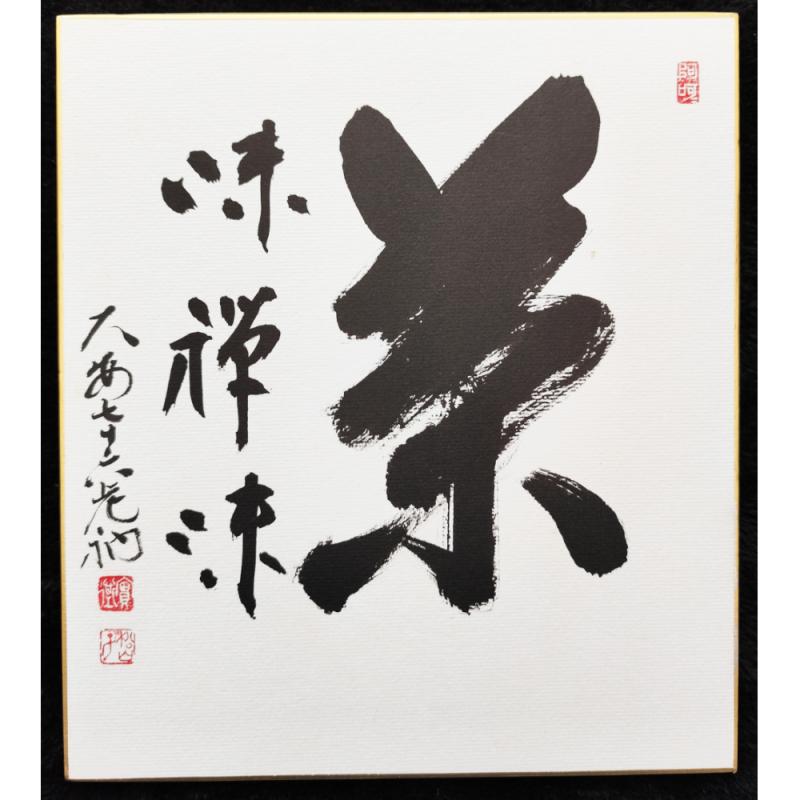 茶
味禅味
大安七十六老衲